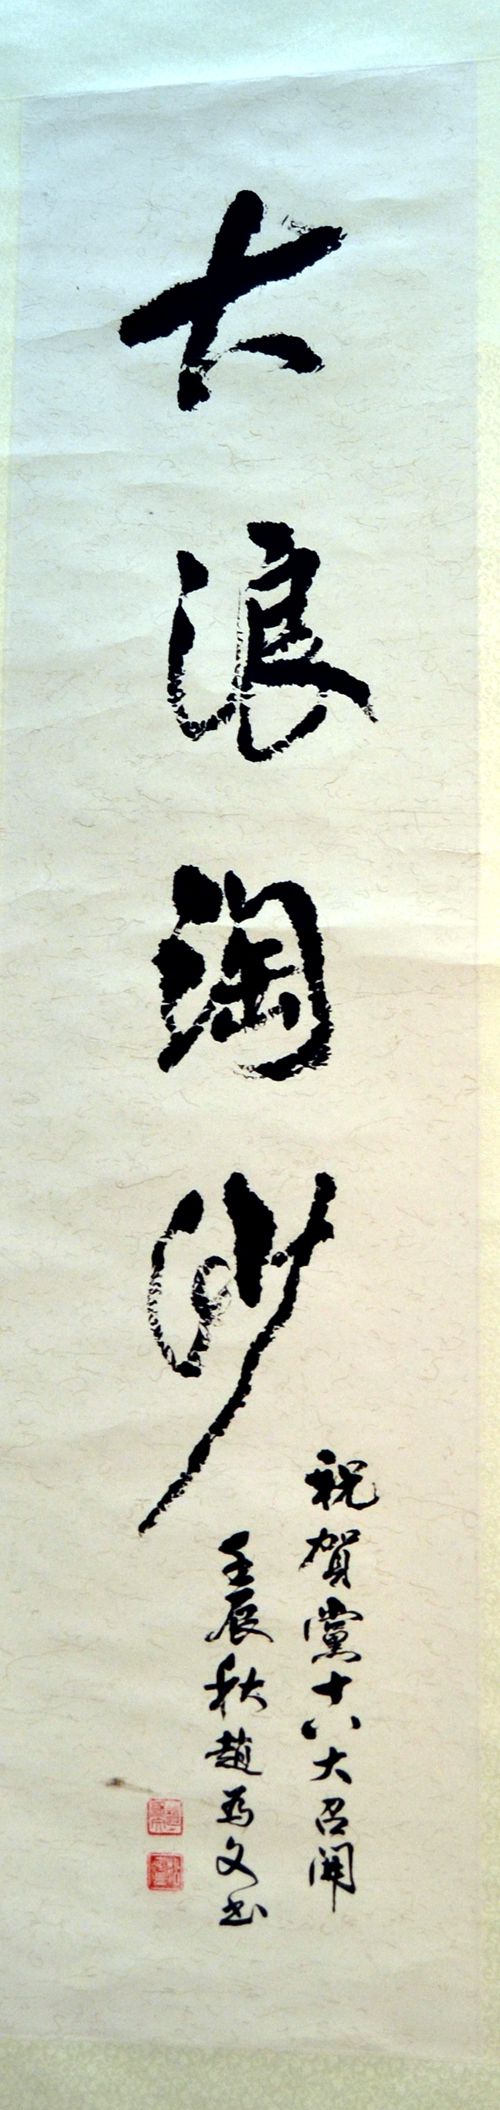 大浪淘沙
祝賀黨十八大召開
壬辰秋趙為文书